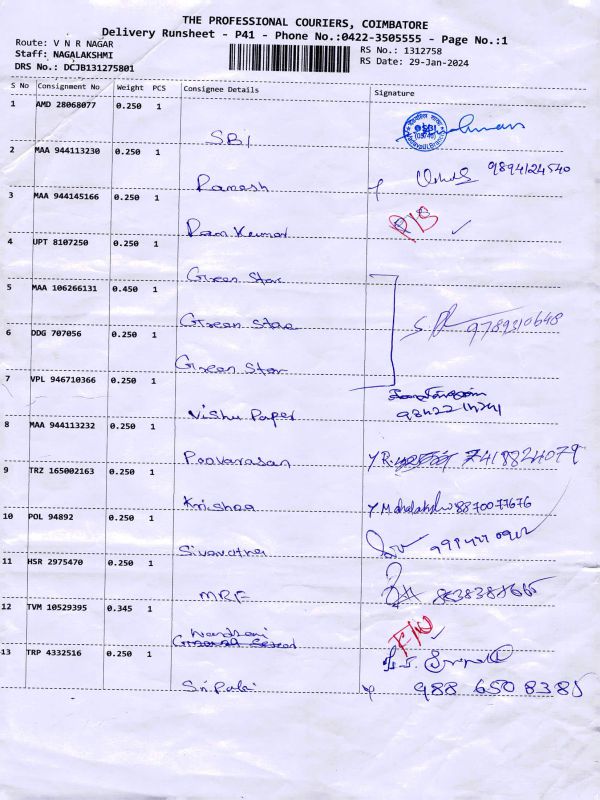 THE PROFESSIONAL COURIERS, COIMBATORE
Delivery Runsheet - P41 - Phone No.:0422-3505555 - Page No.:1
Route: V N R NAGAR
RS No.: 1312758
Staff: NAGALAKSHMI
RS Date: 29-Jan-2024
DRS No.: DCJB131275801
S No Consignment No Weight PCS Consignee Details Signature
1 AMD 28068077 0.250 1
SBI
2 MAA 944113230 0.250 1
Ramesh 9894124540
3 MAA 944145166 0.250 1
Ram Kumar
4 UPT 8107250 0.250 1
Green Star
5 MAA 106266131 0.450 1
Green Star 9789310648
6 DDG 707056 0.250 1
Green Star
7 VPL 946710366 0.250 1
Vishu Paper
8 MAA 944113232 0.250 1
Poovarasan 7418824079
9 TRZ 165002163 0.250 1
Krishna Y Mahalakshmi 8870077676
10 POL 94892 0.250 1
11 HSR 2975470 0.250 1
MRF
12 TVM 10529395 0.345 1
13 TRP 4332516 0.250 1
Sri Palani 988 650 8385